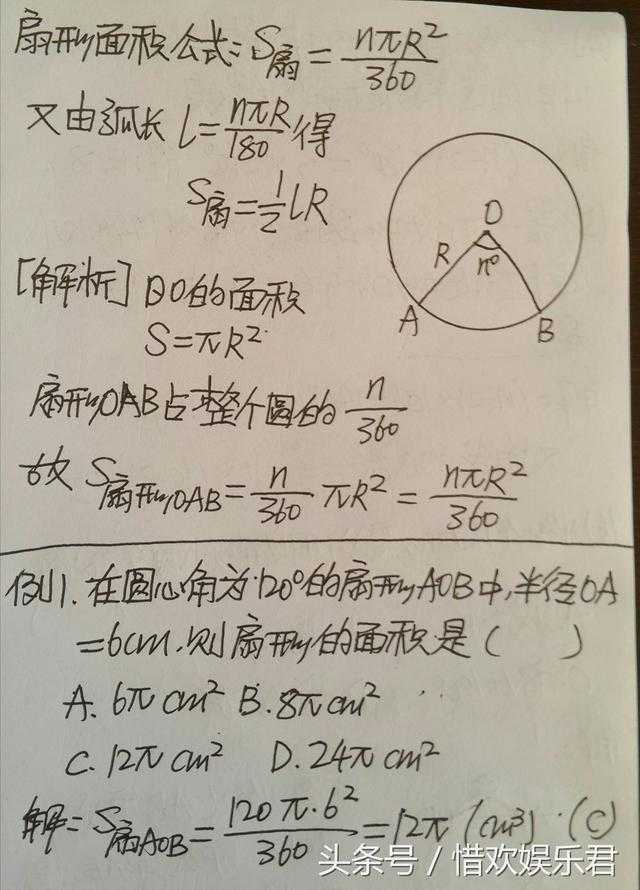 扇形面积公式: S扇 = nπR²/360
又由弧长 l = nπR/180 得
S扇 = 1/2 lR
O
R
n°
A
B
[解析] ⊙O的面积
S = πR²
扇形OAB占整个圆的 n/360
故 S扇形OAB = n/360 πR² = nπR²/360
例1. 在圆心角为120°的扇形AOB中,半径OA
=6cm.则扇形的面积是( )
A. 6π cm² B. 8π cm²
C. 12π cm² D. 24π cm²
解: S扇AOB = 120π·6²/360 = 12π (cm³) (C)
头条号 / 惜欢娱乐君